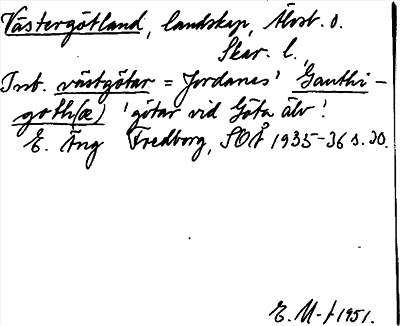 Västergötland, landskap, Älvsb. o.
Skar. l.
Inb. västgötar = Jordanes' Gauthi-
goth(æ) 'götar vid Göta älv'.
E. Äng Fredborg, SOÅ 1935-36 s. 30.
E. M-f 1951.